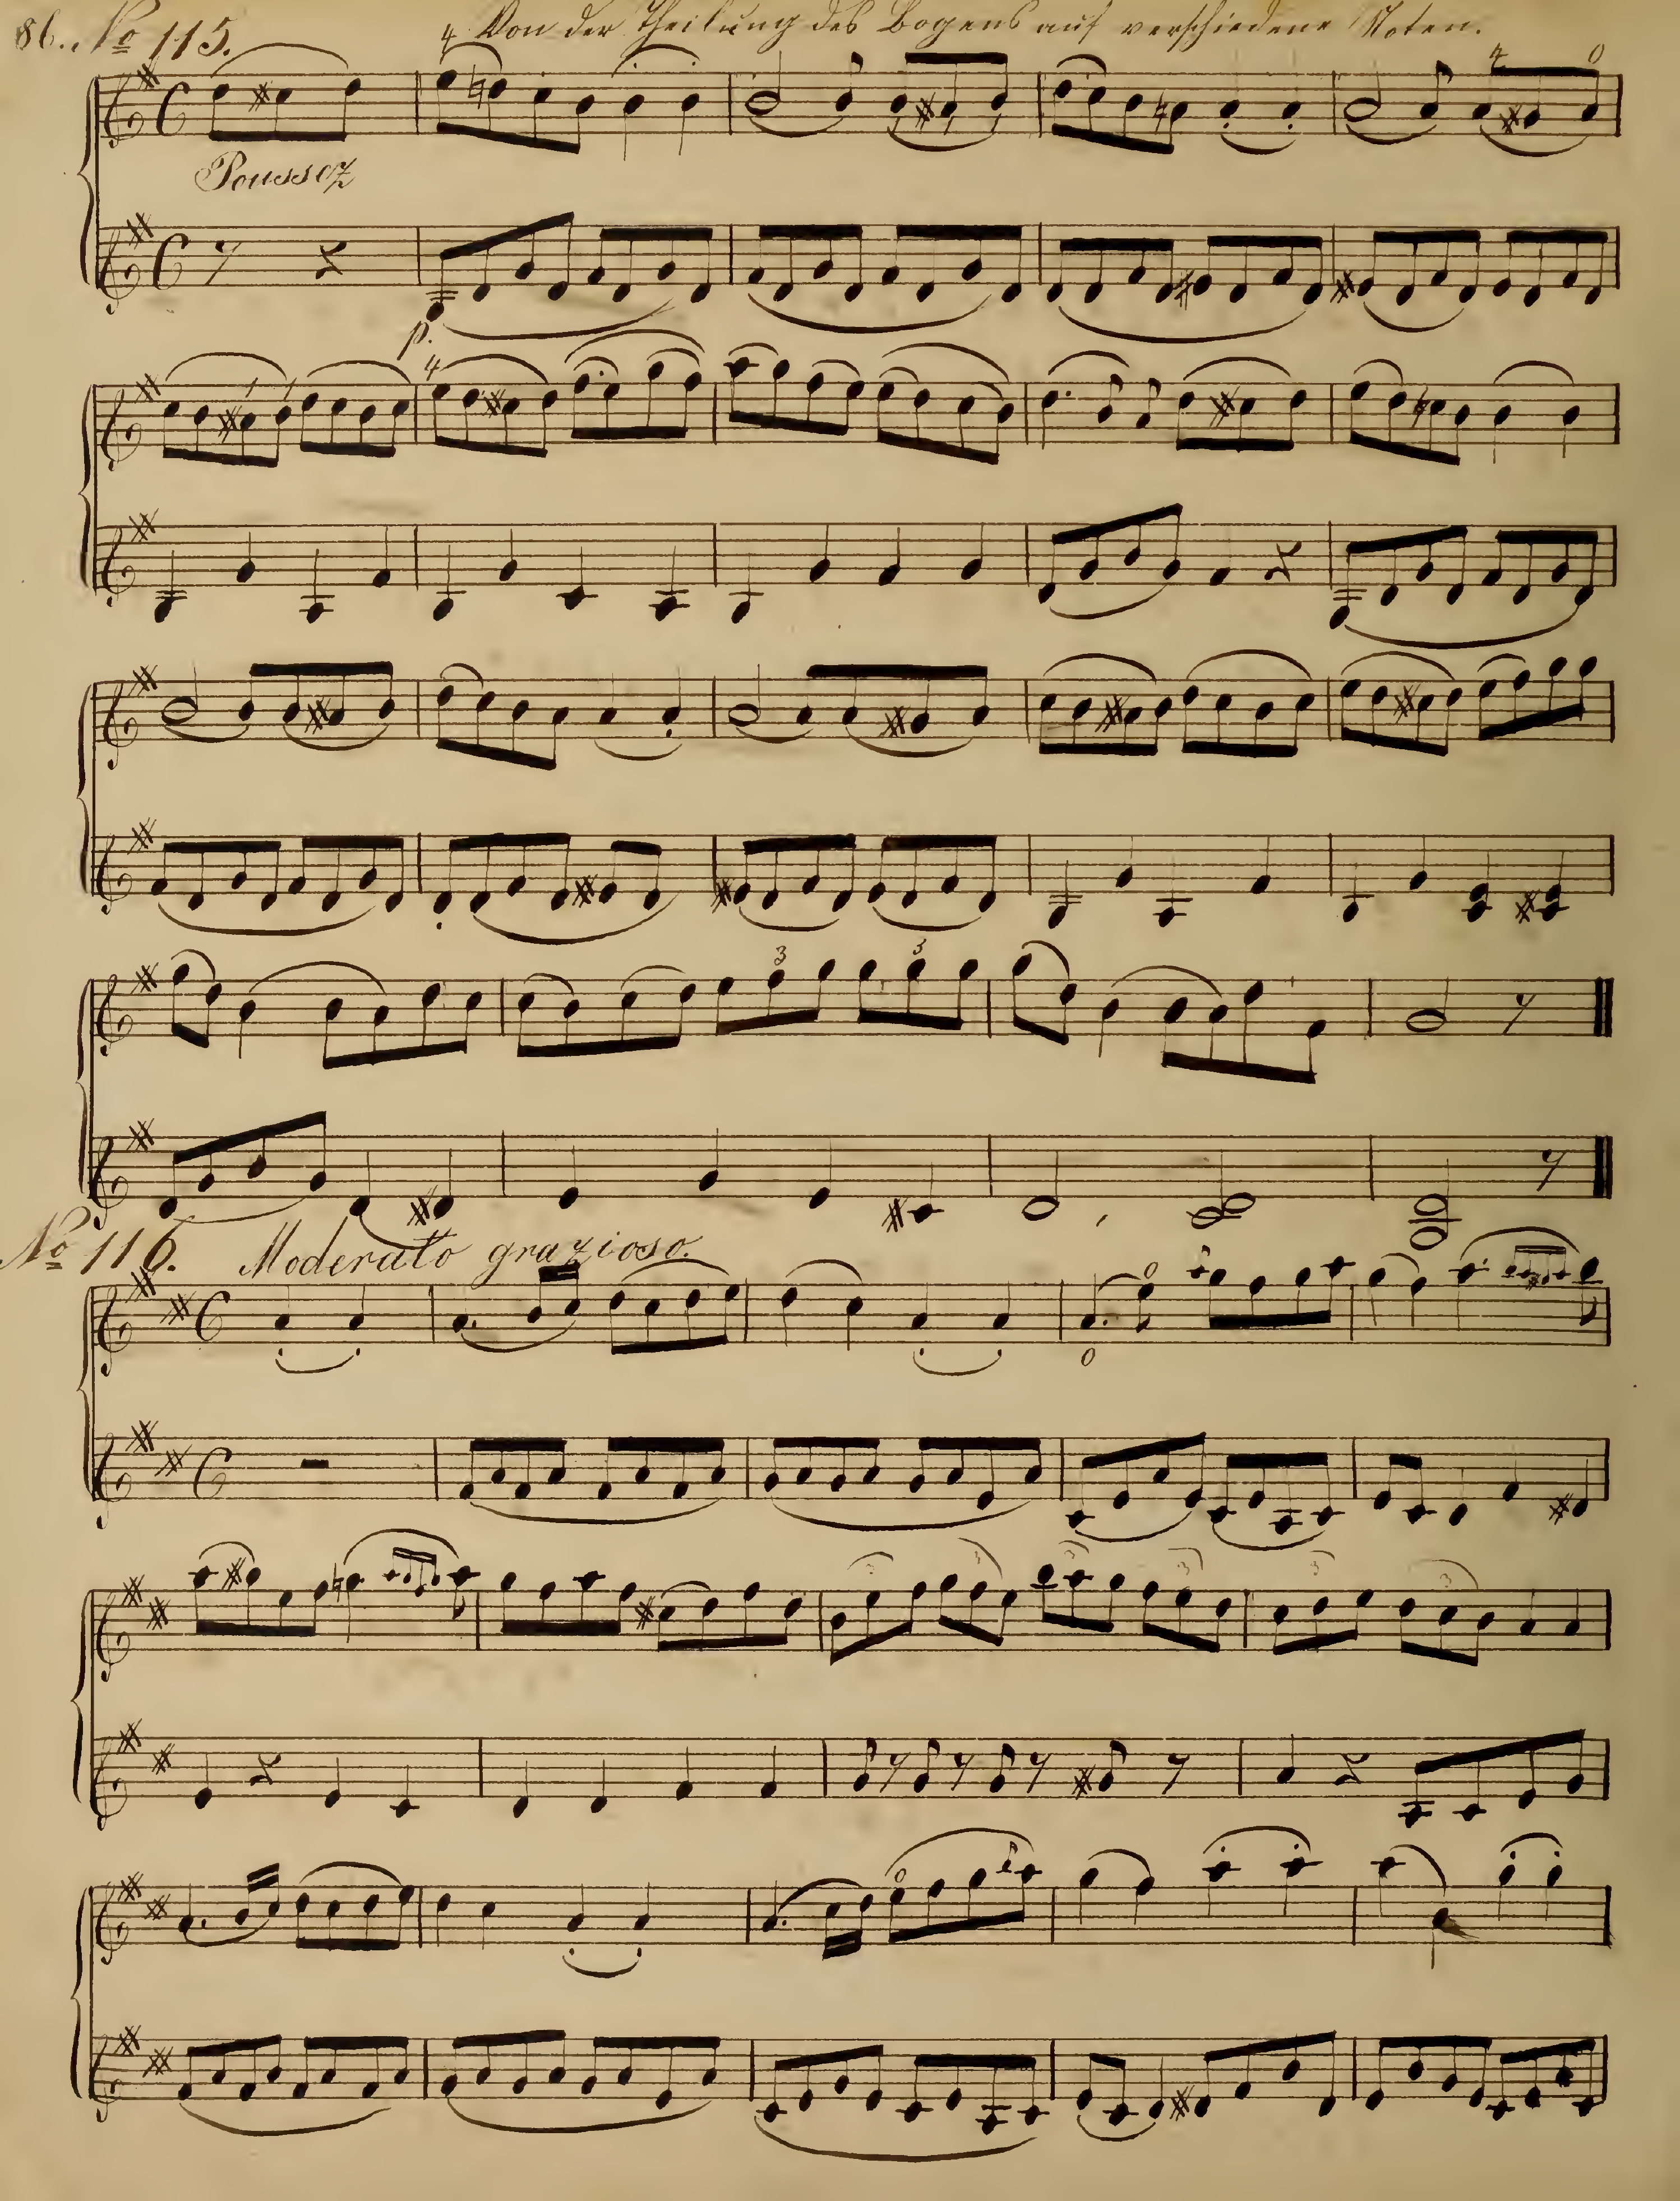 86. No 115. Von der Theilung des Bogens auf verschiedene Noten.
4 4 0
Poussez
p.
4
3 3
No 116. Moderato grazioso.
0
0
3 3 3 3 3 3
0